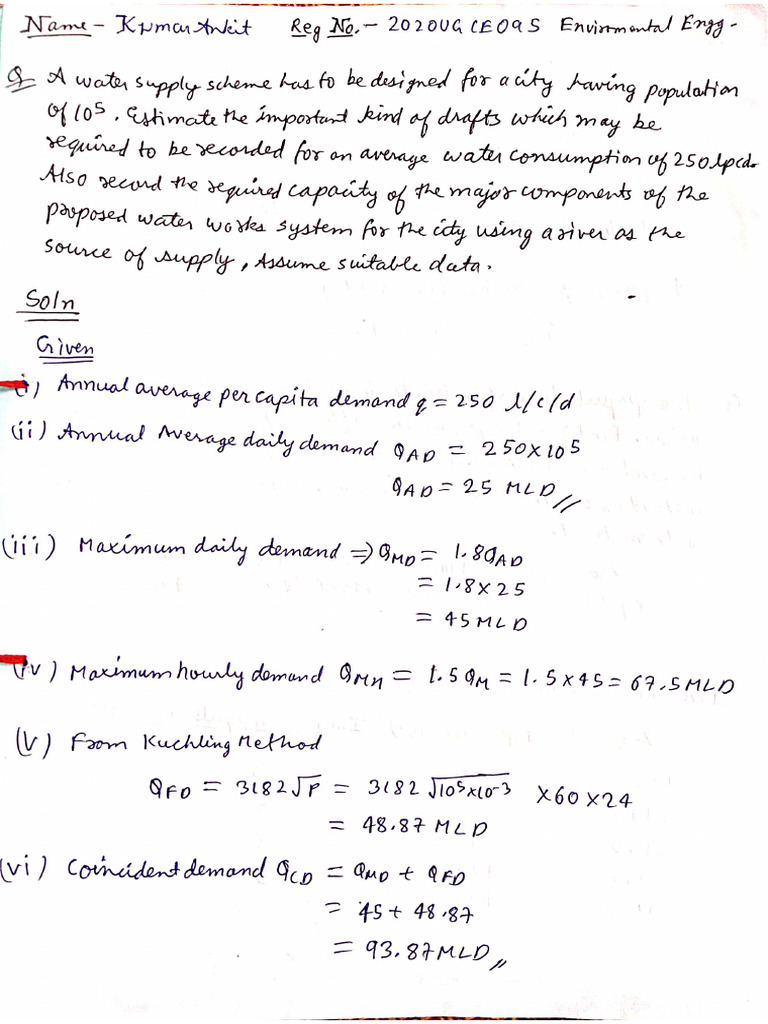 Name - Kumar Ankit Reg No. - 2020UGCE095 Envirnmental Engg -
Q A water supply scheme has to be designed for a city having population
of 10⁵. Estimate the important kind of drafts which may be
required to be recorded for an average water consumption of 250 lpcd.
Also record the required capacity of the major components of the
proposed water works system for the city using a river as the
source of supply, Assume suitable data.
Soln
Given
(i) Annual average per capita demand q = 250 l/c/d
(ii) Annual Average daily demand Q_AD = 250×10⁵
Q_AD = 25 MLD //
(iii) Maximum daily demand ⇒ Q_MD = 1.8 q_AD
= 1.8 × 25
= 45 MLD
(iv) Maximum hourly demand Q_MH = 1.5 Q_M = 1.5 × 45 = 67.5 MLD
(V) From Kuchling Method
Q_FD = 3182 √P = 3182 √10⁵×10⁻³ × 60 × 24
= 48.87 MLD
(vi) Coincident demand Q_CD = Q_MD + Q_FD
= 45 + 48.87
= 93.87 MLD //